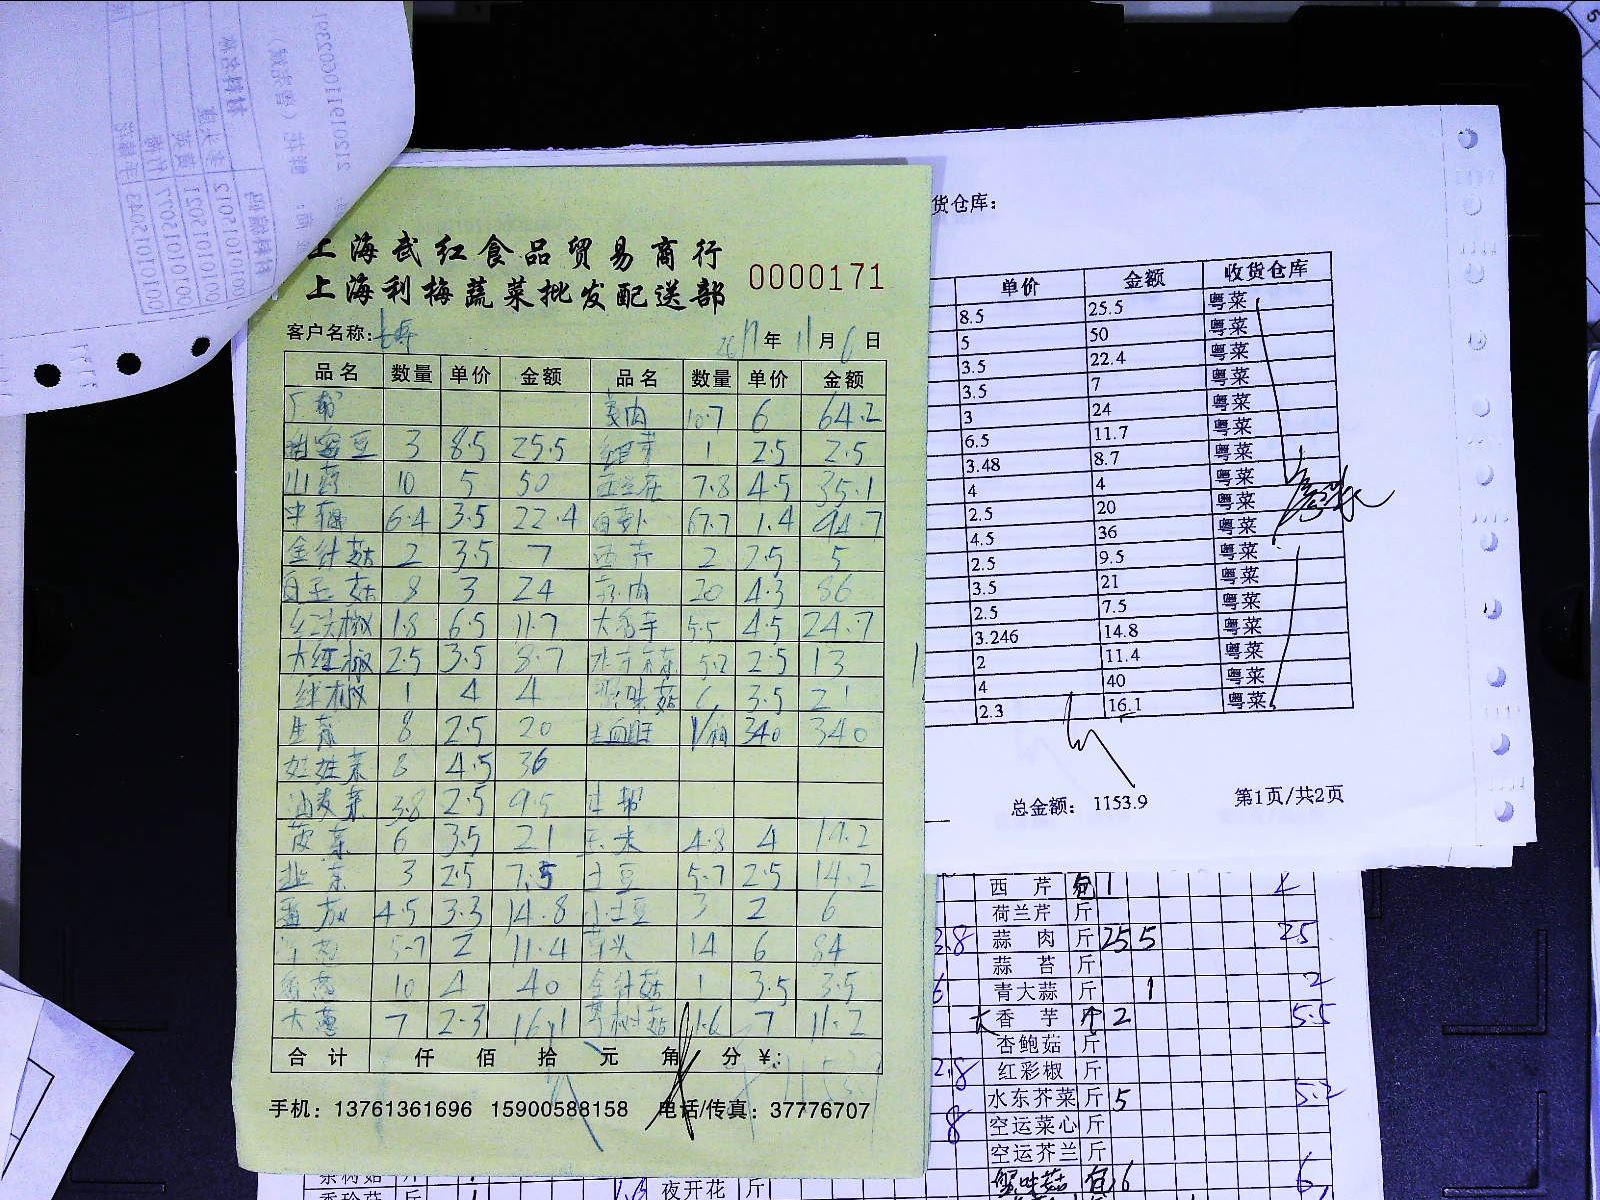 上海武红食品贸易商行
上海利梅蔬菜批发配送部
0000171
客户名称:
2017年11月6日
品名 数量 单价 金额 品名 数量 单价 金额
10.7 6 64.2
3 8.5 25.5 1 2.5 2.5
山药 10 5 50 西兰花 7.8 4.5 35.1
6.4 3.5 22.4 白萝卜 67.7 1.4 94.7
金针菇 2 3.5 7 西芹 2 2.5 5
白玉菇 8 3 24 蒜肉 20 4.3 86
红尖椒 1.8 6.5 11.7 大香芋 5.5 4.5 24.7
大红椒 2.5 3.5 8.7 水东芥菜 5.2 2.5 13
1 4 4 蟹味菇 6 3.5 21
生菜 8 2.5 20 1/箱 340 340
娃娃菜 8 4.5 36
油麦菜 3.8 2.5 9.5 本帮
6 3.5 21 玉米 4.8 4 19.2
3 2.5 7.5 土豆 5.7 2.5 14.2
番茄 4.5 3.3 14.8 小土豆 3 2 6
洋葱 5.7 2 11.4 14 6 84
香葱 10 4 40 金针菇 1 3.5 3.5
大葱 7 2.3 16.1 茶树菇 1.6 7 11.2
合计 仟 佰 拾 元 角 分 ¥:
手机: 13761361696 15900588158 电话/传真: 37776707
货仓库:
单价 金额 收货仓库
8.5 25.5 粤菜
5 50 粤菜
3.5 22.4 粤菜
3.5 7 粤菜
3 24 粤菜
6.5 11.7 粤菜
3.48 8.7 粤菜
4 4 粤菜
2.5 20 粤菜
4.5 36 粤菜
2.5 9.5 粤菜
3.5 21 粤菜
2.5 7.5 粤菜
3.246 14.8 粤菜
2 11.4 粤菜
4 40 粤菜
2.3 16.1 粤菜
总金额: 1153.9 第1页/共2页
西芹 包 1
荷兰芹 斤
3.8 蒜肉 斤 25 5 25
蒜苔 斤
6 青大蒜 斤 1 2
大香芋 个 2 5.5
杏鲍菇 斤
2.8 红彩椒 斤
水东芥菜 斤 5 5.2
8 空运菜心 斤
空运芥兰 斤
蟹味菇 包 6 6
茶树菇 斤
夜开花 斤